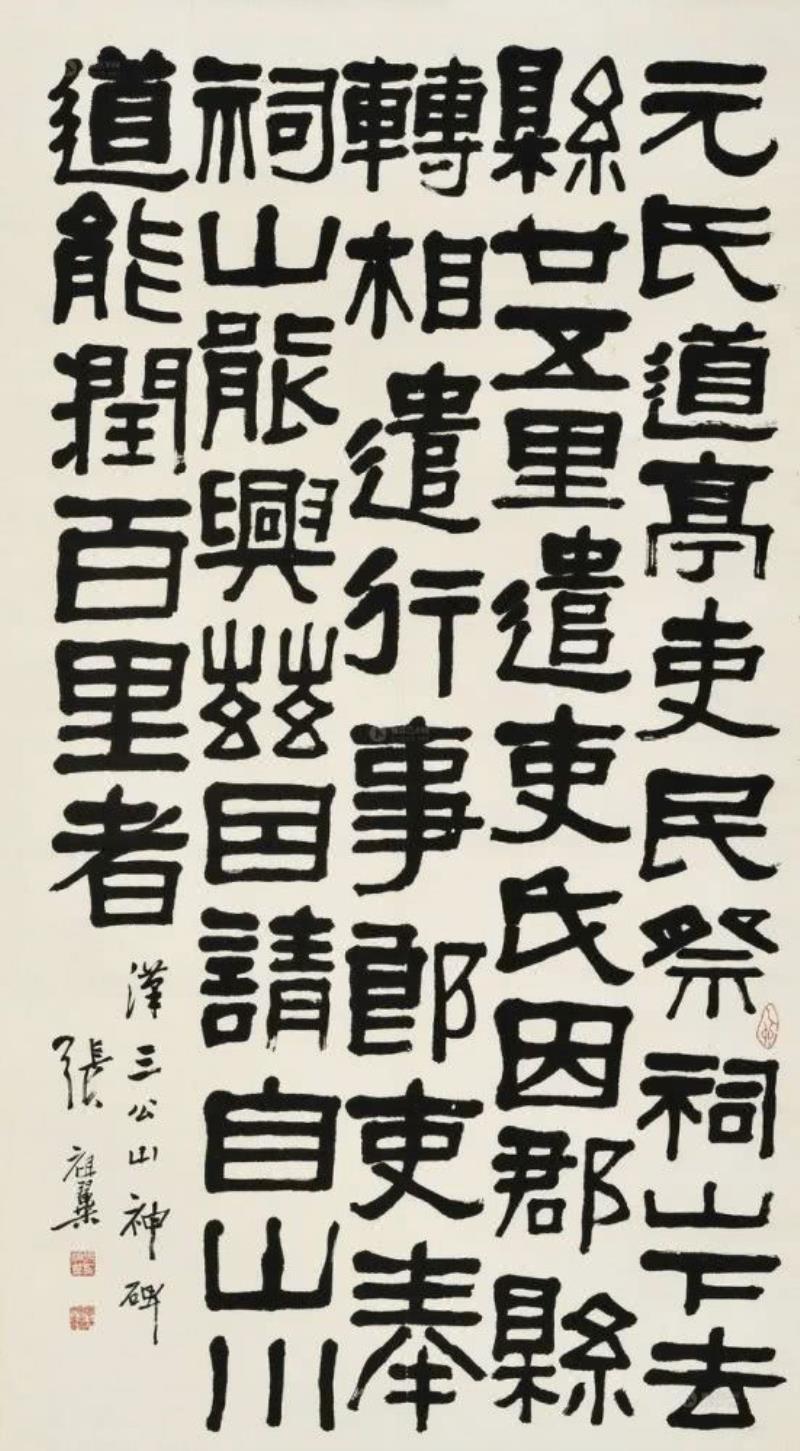 元氏道亭吏民祭祠山下去
縣廿五里遣吏氏因郡縣
轉相遣行事郎吏奉
祠山能興茲田請自山川
道能潤百里者
漢三公山神碑
張祖翼